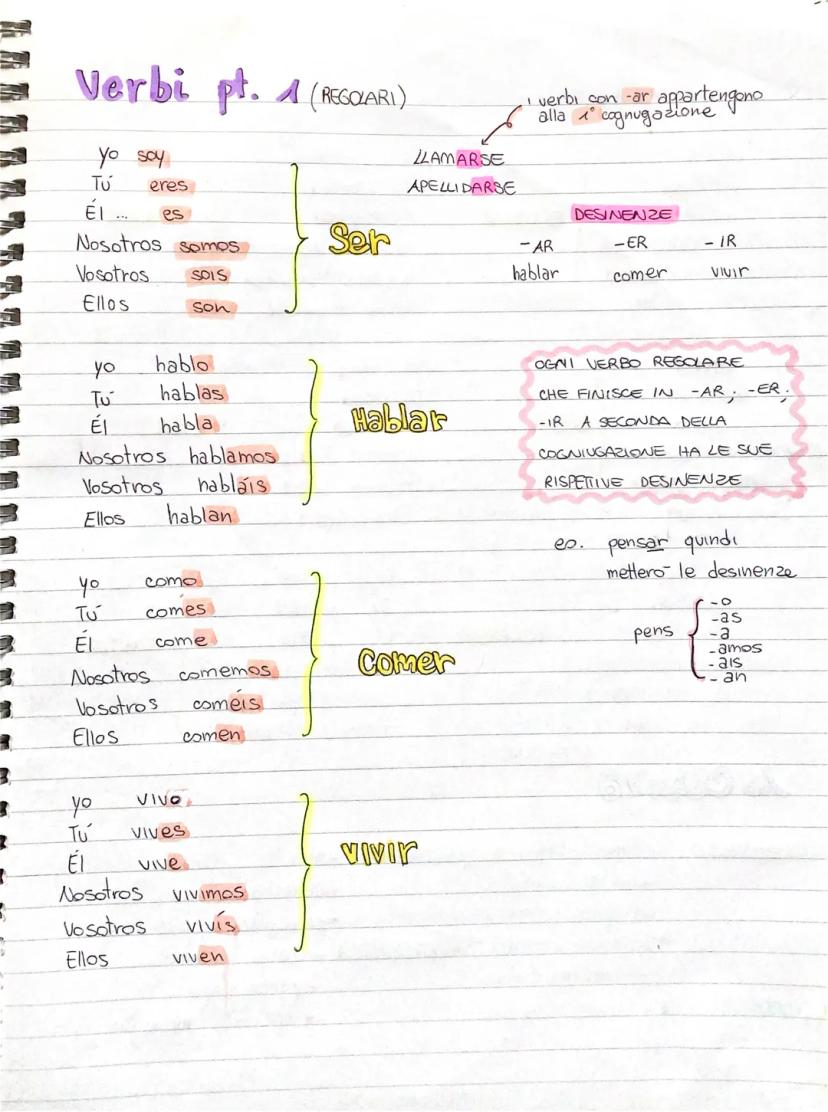 Verbi pt. 1 (REGOLARI)
i verbi con -ar appartengono
alla 1° cognugazione
LLAMARSE
APELLIDARSE
Yo soy
Tú eres
Él ... es
Nosotros somos
Vosotros sois
Ellos son
Ser
DESINENZE
-AR -ER -IR
hablar comer vivir
yo hablo
Tú hablas
Él habla
Nosotros hablamos
Vosotros habláis
Ellos hablan
Hablar
OGNI VERBO REGOLARE
CHE FINISCE IN -AR; -ER;
-IR A SECONDA DELLA
COGNIUGAZIONE HA LE SUE
RISPETIVE DESINENZE
es. pensar quindi
metterò le desinenze
pens
-o
-as
-a
-amos
-ais
-an
yo como
Tú comes
Él come
Nosotros comemos
Vosotros coméis
Ellos comen
Comer
yo vivo
Tú vives
Él vive
Nosotros vivimos
Vosotros vivís
Ellos viven
vivir